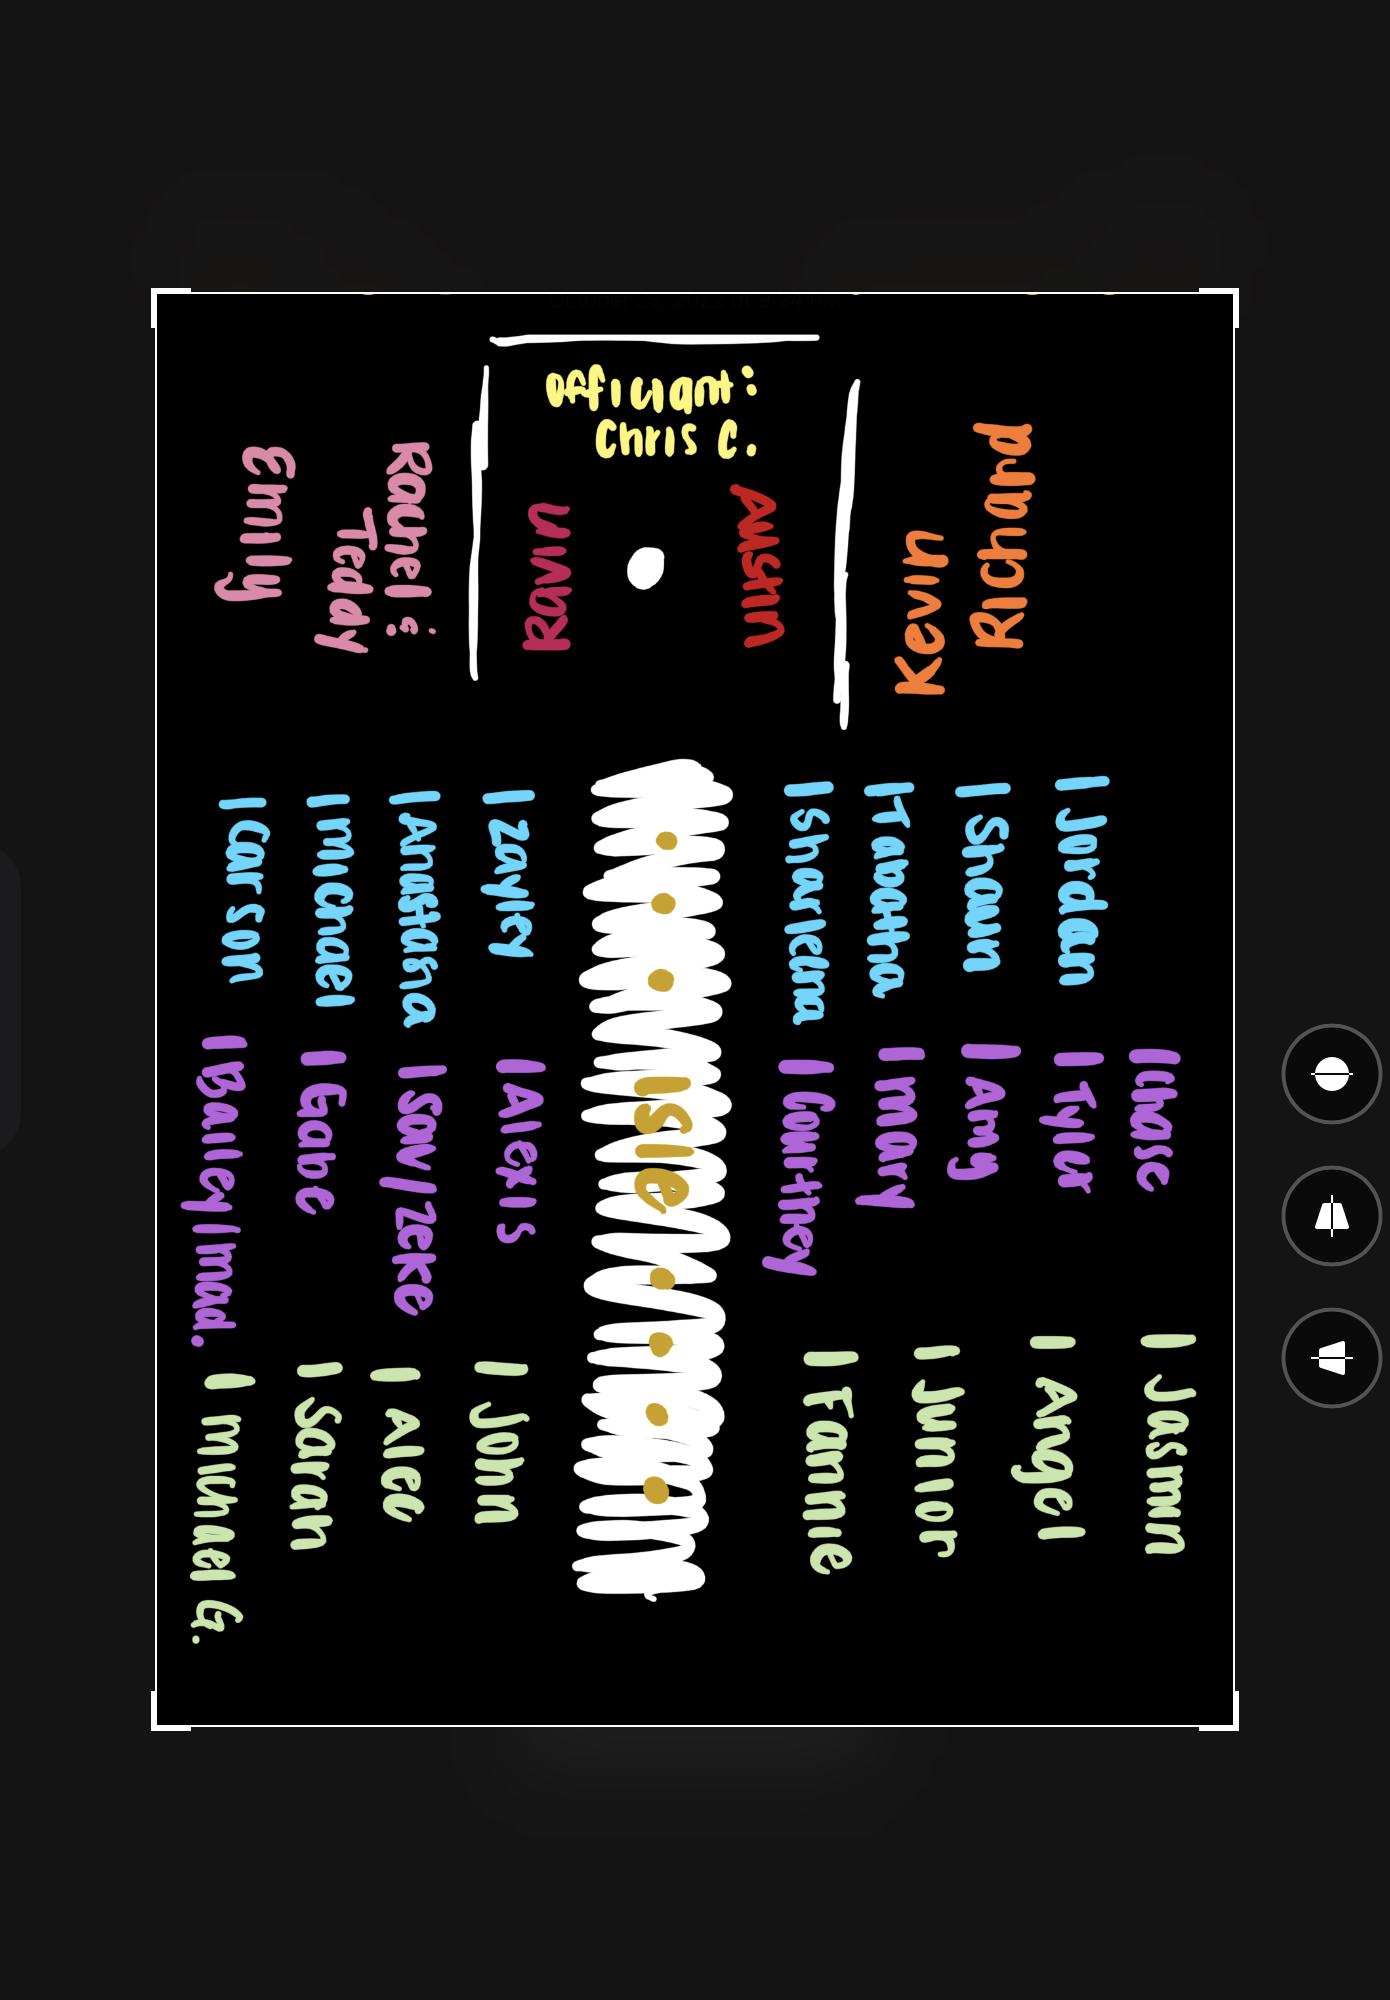 October 25, 2022 at 9:24 PM
Officiant:
Chris C.
Emily
Rachel &
Teddy
Ravin
Austin
Kevin
Richard
Carson
Michael
Anastasia
Zayley
Sharlena
Tabatha
Shawn
Jordan
Bailey/Mad.
Gabe
Sav/Zeke
Alexis
Isle
Courtney
Mary
Amy
Tyler
Chase
Michael G.
Sarah
Alec
John
Fannie
Junior
Angel
Jasmin